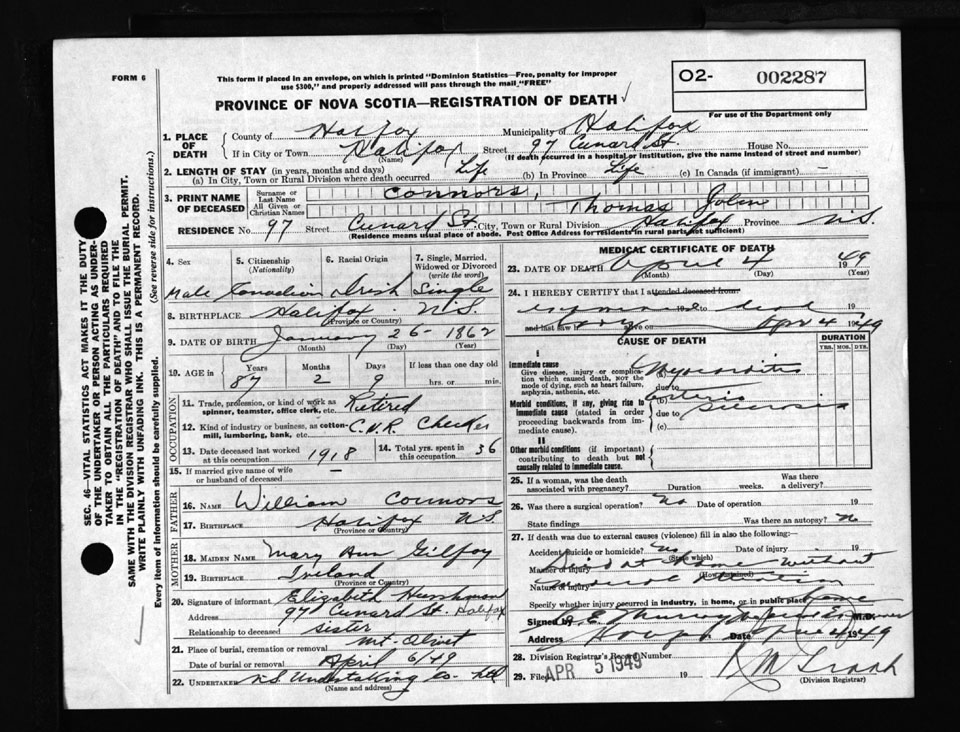 FORM 6
This form if placed in an envelope, on which is printed "Dominion Statistics—Free, penalty for improper
use $300," and properly addressed will pass through the mail "FREE"
O2- 002287
For use of the Department only
PROVINCE OF NOVA SCOTIA—REGISTRATION OF DEATH
1. PLACE OF DEATH County of Halifax Municipality of Halifax
If in City or Town Halifax (Name) 97 Cunard St. Street House No.
(If death occurred in a hospital or institution, give the name instead of street and number)
2. LENGTH OF STAY (in years, months and days)
(a) In City, Town or Rural Division where death occurred Life (b) In Province Life (c) In Canada (if immigrant) -
3. PRINT NAME OF DECEASED Surname or Last Name Connors,
All Given or Christian Names Thomas John
RESIDENCE No 97 Street Cunard St. City, Town or Rural Division Halifax Province N.S.
(Residence means usual place of abode. Post Office Address for residents in rural parts not sufficient)
4. Sex 5. Citizenship (Nationality) 6. Racial Origin 7. Single, Married, Widowed or Divorced (write the word)
Male Canadian Irish Single
8. BIRTHPLACE Halifax N.S.
(Province or Country)
9. DATE OF BIRTH January 26 - 1862
(Month) (Day) (Year)
10. AGE in Years Months Days If less than one day old
87 2 9 hrs. or min.
OCCUPATION
11. Trade, profession, or kind of work as spinner, teamster, office clerk, etc. Retired
12. Kind of industry or business, as cotton-mill, lumbering, bank, etc. C.N.R. Checker
13. Date deceased last worked at this occupation 1918 14. Total yrs. spent in this occupation 36
15. If married give name of wife or husband of deceased —
FATHER
16. NAME William Connors
17. BIRTHPLACE Halifax N.S.
(Province or Country)
MOTHER
18. MAIDEN NAME Mary Ann Gilfoy
19. BIRTHPLACE Ireland
(Province or Country)
20. Signature of informant Elizabeth
Address 97 Cunard St. Halifax
Relationship to deceased sister
21. Place of burial, cremation or removal Mt. Olivet
Date of burial or removal April 6/49
22. UNDERTAKER N.S Undertaking Co. Ltd
(Name and address)
MEDICAL CERTIFICATE OF DEATH
23. DATE OF DEATH April 4 1949
(Month) (Day) (Year)
24. I HEREBY CERTIFY that I attended deceased from
19 to 19
and last saw h alive on Apr 4 1949
CAUSE OF DEATH
DURATION
YRS. MOS. DYS.
I
Immediate cause
Give disease, injury or complication which caused death, NOT the mode of dying, such as heart failure, asphyxia, asthenia, etc.
(a) Myocarditis
due to
Morbid conditions, if any, giving rise to immediate cause (stated in order proceeding backwards from immediate cause).
(b) Arterio
due to Sclerosis
(c)
II
Other morbid conditions (if important) contributing to death but not causally related to immediate cause.
25. If a woman, was the death associated with pregnancy? Duration weeks. Was there a delivery?
26. Was there a surgical operation? No Date of operation 19
State findings Was there an autopsy? No
27. If death was due to external causes (violence) fill in also the following:—
Accident, suicide or homicide? No (State which) Date of injury 19
Manner of injury Died at home without
(How sustained)
Nature of injury medical attention
Specify whether injury occurred in industry, in home, or in public place home
Signed by M.D.
Address Date 4 1949
28. Division Registrar's Record Number
29. Filed APR 5 1949 19
(Division Registrar)
SEC. 46—VITAL STATISTICS ACT MAKES IT THE DUTY
OF THE UNDERTAKER OR PERSON ACTING AS UNDERTAKER
TO OBTAIN ALL THE PARTICULARS REQUIRED
IN THE "REGISTRATION OF DEATH" AND TO FILE THE
SAME WITH THE DIVISION REGISTRAR WHO SHALL ISSUE THE BURIAL PERMIT.
WRITE PLAINLY WITH UNFADING INK. THIS IS A PERMANENT RECORD.
Every item of information should be carefully supplied. (See reverse side for instructions.)